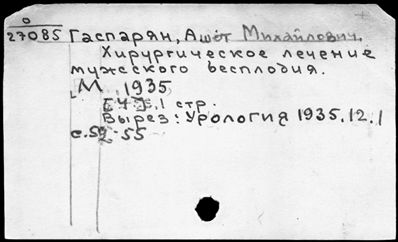 0
27085 Гаспарян, Ашот Михайлович.
Хирургическое лечение
мужсского бесплодия.
М, 1935
[4], 1 стр.
Вырез: Урология 1935.12.1
с. 52-55